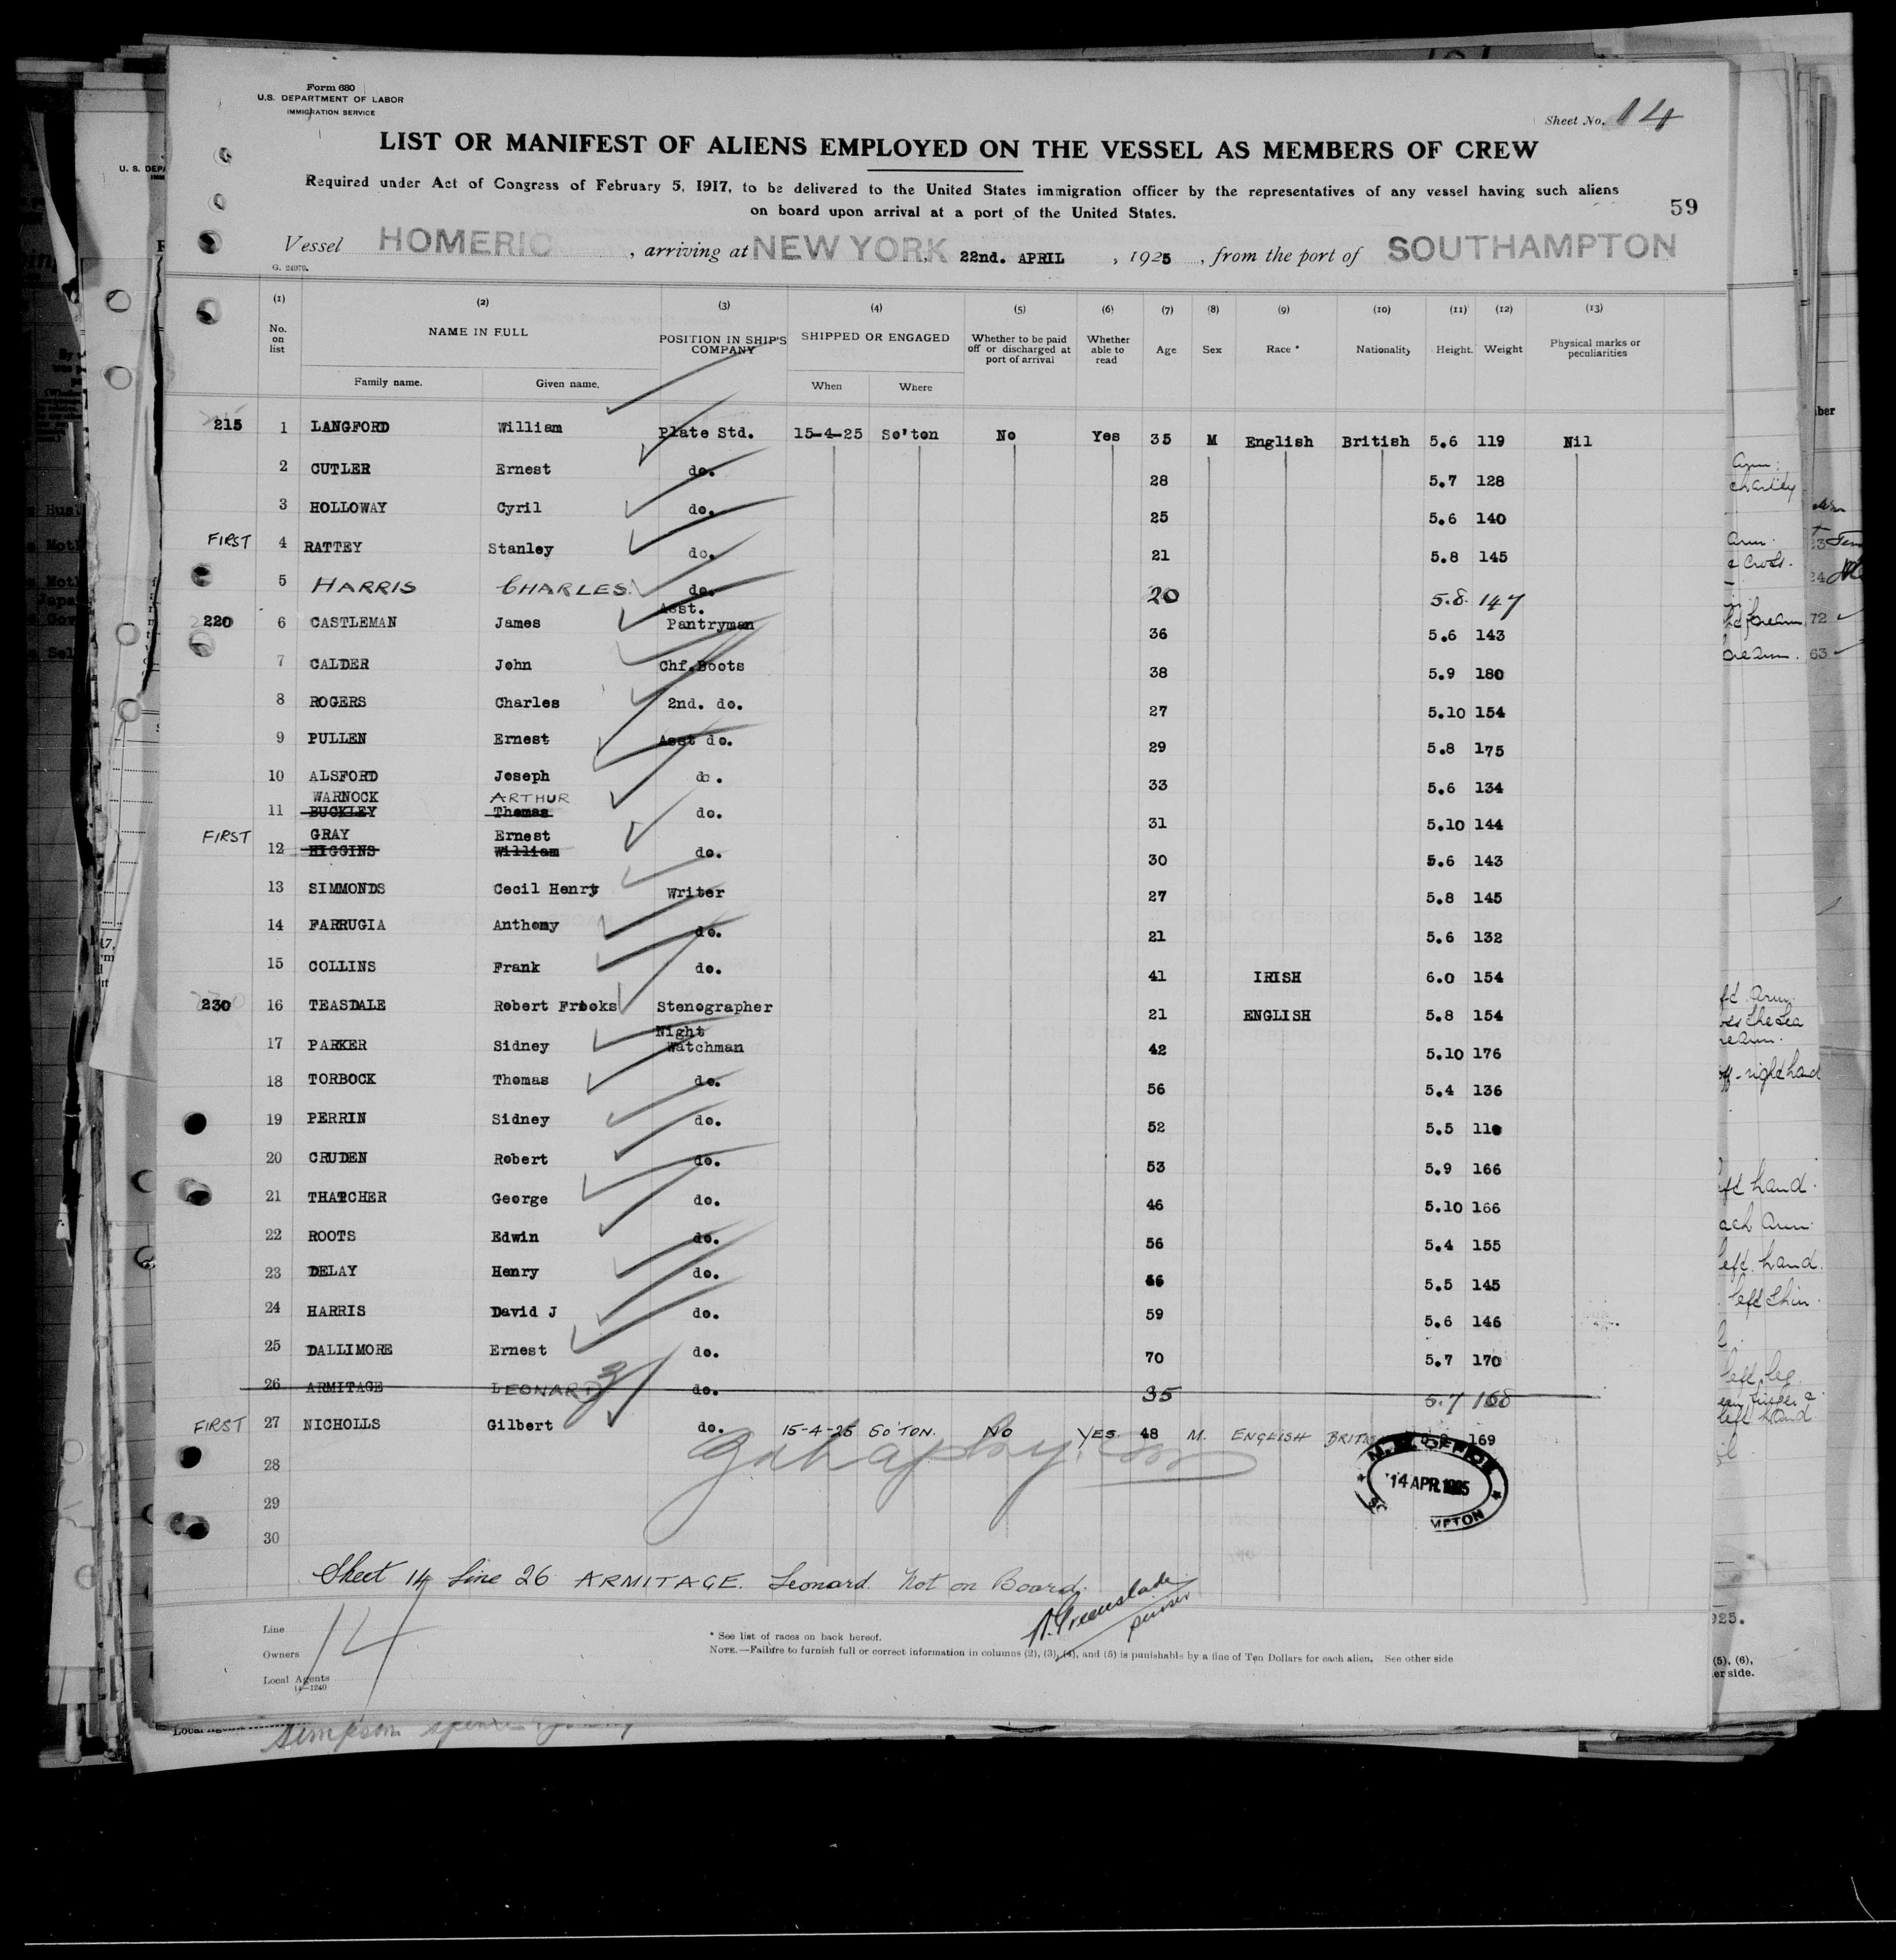 Form 680
U.S. DEPARTMENT OF LABOR
IMMIGRATION SERVICE
Sheet No. 14
LIST OR MANIFEST OF ALIENS EMPLOYED ON THE VESSEL AS MEMBERS OF CREW
Required under Act of Congress of February 5, 1917, to be delivered to the United States immigration officer by the representatives of any vessel having such aliens
on board upon arrival at a port of the United States.
59
Vessel HOMERIC, arriving at NEW YORK 22nd. APRIL, 1925, from the port of SOUTHAMPTON
G. 24979.
(1) (2) (3) (4) (5) (6) (7) (8) (9) (10) (11) (12) (13)
No. on list NAME IN FULL POSITION IN SHIP'S COMPANY SHIPPED OR ENGAGED Whether to be paid off or discharged at port of arrival Whether able to read Age Sex Race * Nationality Height. Weight Physical marks or peculiarities
Family name. Given name. When Where
215 1 LANGFORD William Plate Std. 15-4-25 So'ton No Yes 35 M English British 5.6 119 Nil
2 CUTLER Ernest do. 28 5.7 128
3 HOLLOWAY Cyril do. 25 5.6 140
FIRST 4 RATTEY Stanley do. 21 5.8 145
5 HARRIS CHARLES. do. 20 5.8. 147
220 6 CASTLEMAN James Asst. Pantryman 36 5.6 143
7 CALDER John Chf.Boots 38 5.9 180
8 ROGERS Charles 2nd. do. 27 5.10 154
9 PULLEN Ernest Asst do. 29 5.8 175
10 ALSFORD Joseph do. 33 5.6 134
WARNOCK ARTHUR
11 BUCKLEY Thomas do. 31 5.10 144
FIRST GRAY Ernest
12 HIGGINS William do. 30 5.6 143
13 SIMMONDS Cecil Henry Writer 27 5.8 145
14 FARRUGIA Anthony do. 21 5.6 132
15 COLLINS Frank do. 41 IRISH 6.0 154
230 16 TEASDALE Robert Stenographer 21 ENGLISH 5.8 154
17 PARKER Sidney Night Watchman 42 5.10 176
18 TORBOCK Thomas do. 56 5.4 136
19 PERRIN Sidney do. 52 5.5 110
20 CRUDEN Robert do. 53 5.9 166
21 THATCHER George do. 46 5.10 166
22 ROOTS Edwin do. 56 5.4 155
23 DELAY Henry do. 5.5 145
24 HARRIS David J do. 59 5.6 146
25 DALLIMORE Ernest do. 70 5.7 170
26 ARMITAGE LEONARD do. 35 5.7 168
FIRST 27 NICHOLLS Gilbert do. 15-4-25 SO'TON. NO YES. 48 M. ENGLISH 169
28
29
30
14 APR 1925
Sheet 14 Line 26 ARMITAGE. Leonard. Not on Board.
A. Greenslade
purser
14
Line
Owners
Local Agents
14—1240
* See list of races on back hereof.
NOTE.—Failure to furnish full or correct information in columns (2), (3), (4), and (5) is punishable by a fine of Ten Dollars for each alien. See other side